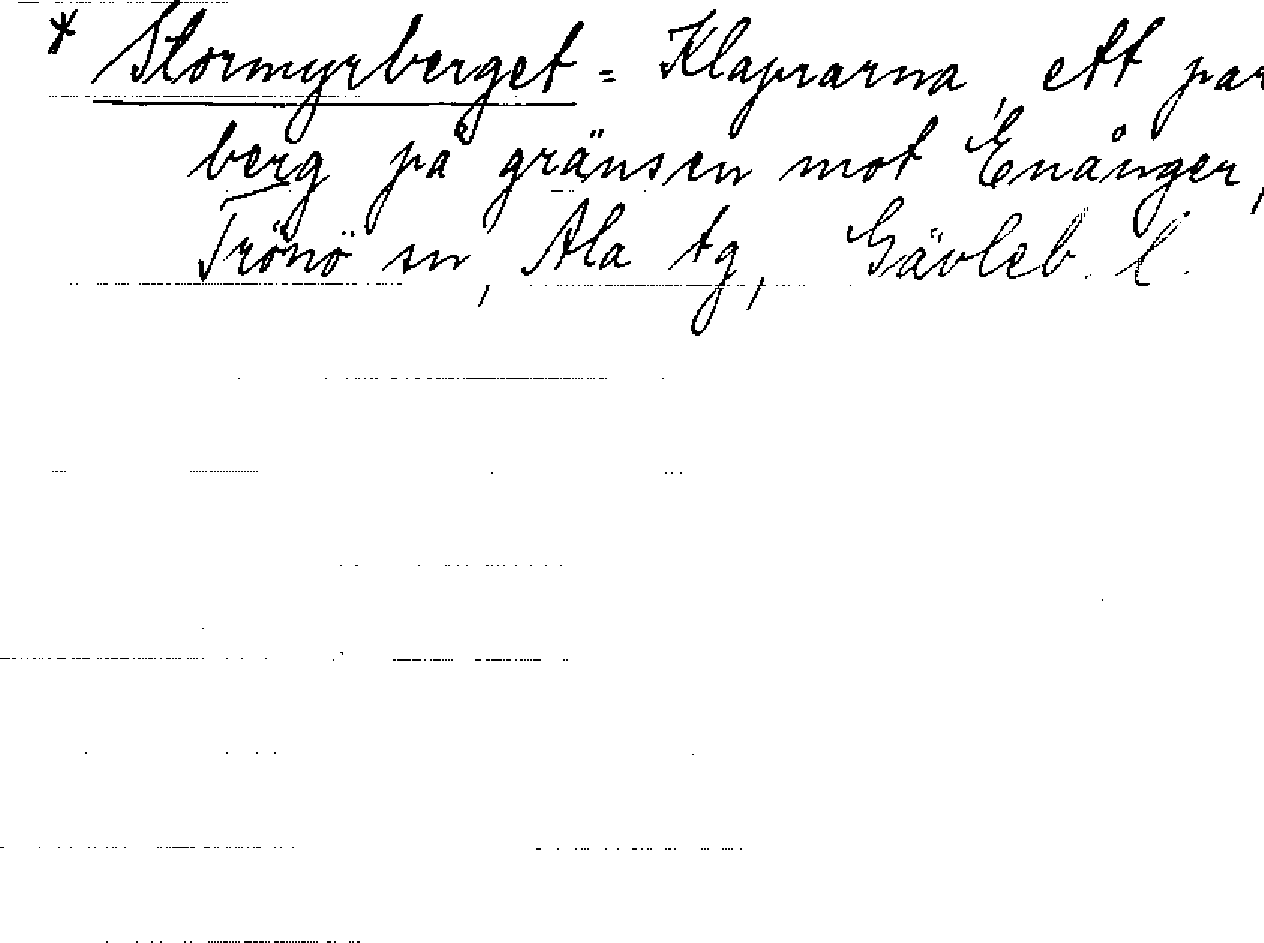 * Stormyrberget = Klaprarna, ett par
berg på gränsen mot Enånger,
Trönö sn, Ala tg, Gävleb. l.